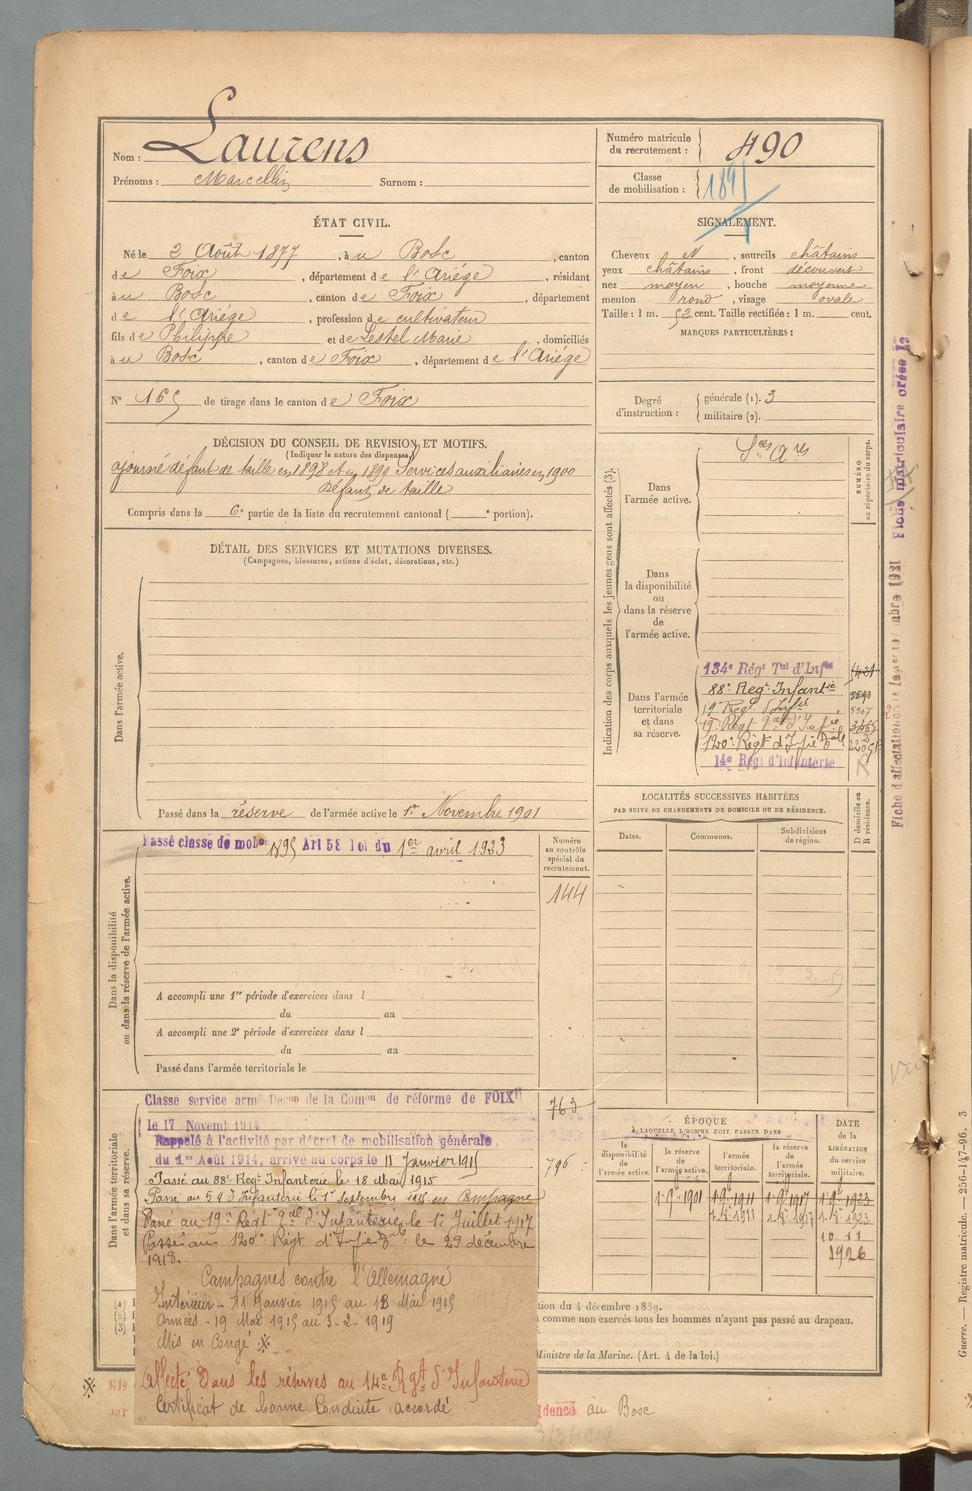 Nom : Laurens
Prénoms : Marcellin Surnom :
Numéro matricule du recrutement : 490
Classe de mobilisation : 1895
ÉTAT CIVIL.
Né le 2 Août 1877, à u Bosc, canton
de Foix, département de l'Ariége, résidant
à u Bosc, canton de Foix, département
de l'Ariége, profession de cultivateur
fils de Philippe et de Lestel Marie, domiciliés
à u Bosc, canton de Foix, département de l'Ariége
SIGNALEMENT.
Cheveux N, sourcils châtains
yeux châtains, front découvert
nez moyen, bouche moyenne
menton rond, visage ovale
Taille : 1 m. 52 cent. Taille rectifiée : 1 m. cent.
MARQUES PARTICULIÈRES :
N° 165 de tirage dans le canton de Foix
Degré d'instruction : générale (1). 3
militaire (2).
DÉCISION DU CONSEIL DE REVISION ET MOTIFS.
(Indiquer la nature des dispenses.)
ajourné défaut de taille en 1898 et en 1899 Services auxiliaires en 1900
Défaut de taille
Compris dans la 6e partie de la liste du recrutement cantonal ( e portion).
DÉTAIL DES SERVICES ET MUTATIONS DIVERSES.
(Campagnes, blessures, actions d'éclat, décorations, etc.)
Dans l'armée active.
Passé dans la réserve de l'armée active le 1er Novembre 1901
Indication des corps auxquels les jeunes gens sont affectés (3).
NUMÉRO au répertoire du corps.
Dans l'armée active.
Ses Ares
Dans la disponibilité ou dans la réserve de l'armée active.
Dans l'armée territoriale et dans sa réserve.
134e Régt Tal d'Infie
88e Regt Infantie 5593
19 Regt d'Infie 5507
19e Régt Tal d'Infie
120e Régt d'Infie Tale
14e Régt d'Infanterie
Fiche matriculaire créée le
LOCALITÉS SUCCESSIVES HABITÉES
PAR SUITE DE CHANGEMENTS DE DOMICILE OU DE RÉSIDENCE.
Dates. Communes. Subdivisions de région. D domicile ou R résidence.
Dans la disponibilité ou dans la réserve de l'armée active.
Passé classe de mobon 1895 Art 58 loi du 1er avril 1923
Numéro au contrôle spécial du recrutement.
144
A accompli une 1re période d'exercices dans l
du au
A accompli une 2e période d'exercices dans l
du au
Passé dans l'armée territoriale le
Dans l'armée territoriale et dans sa réserve.
Classe service armé Decon de la Comon de réforme de FOIX 763
le 17 Novembt 1914
Rappelé à l'activité par décret de mobilisation générale
du 1er Août 1914, arrivé au corps le 11 Janvier 1915 796
Passé au 88e Regt Infanterie le 18 Mai 1915
Passé au 59 d'Infanterie le 1er Septembre 1915 en Campagne
Passé au 19e Régt Tal d'Infanterie le 1er Juillet 1917
Passé au 120e Régt d'Infie Tale le 29 décembre
1918.
Campagnes contre l'Allemagne
Intérieur - 11 Janvier 1915 au 18 Mai 1915
Armées - 19 Mai 1915 au 3-2-1919
Mis en Congé ※
Affecté Dans les réserves au 14e Rgt d'Infanterie
Certificat de bonne Conduite accordé
ÉPOQUE
A LAQUELLE L'HOMME DOIT PASSER DANS
la disponibilité de l'armée active. la réserve de l'armée active. l'armée territoriale. la réserve de l'armée territoriale.
DATE de la LIBÉRATION du service militaire.
1-9bre 1901 1-9bre 1911 1-9bre 1917 1-9bre 1923
10 11
1926
tion du 4 décembre 1889.
comme non exercés tous les hommes n'ayant pas passé au drapeau.
Ministre de la Marine. (Art. 4 de la loi.)
※ Mis
dence au Bosc
3/3/1919
Guerre. — Registre matricule. — 256-147-96. 3